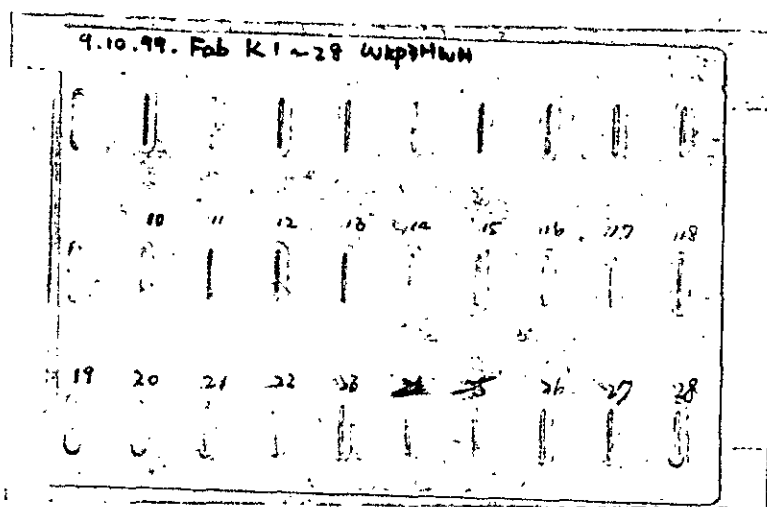 9.10.99. Fab K1~28
10 11 12 13 14 15 16 17 18
19 20 21 22 23 24 25 26 27 28